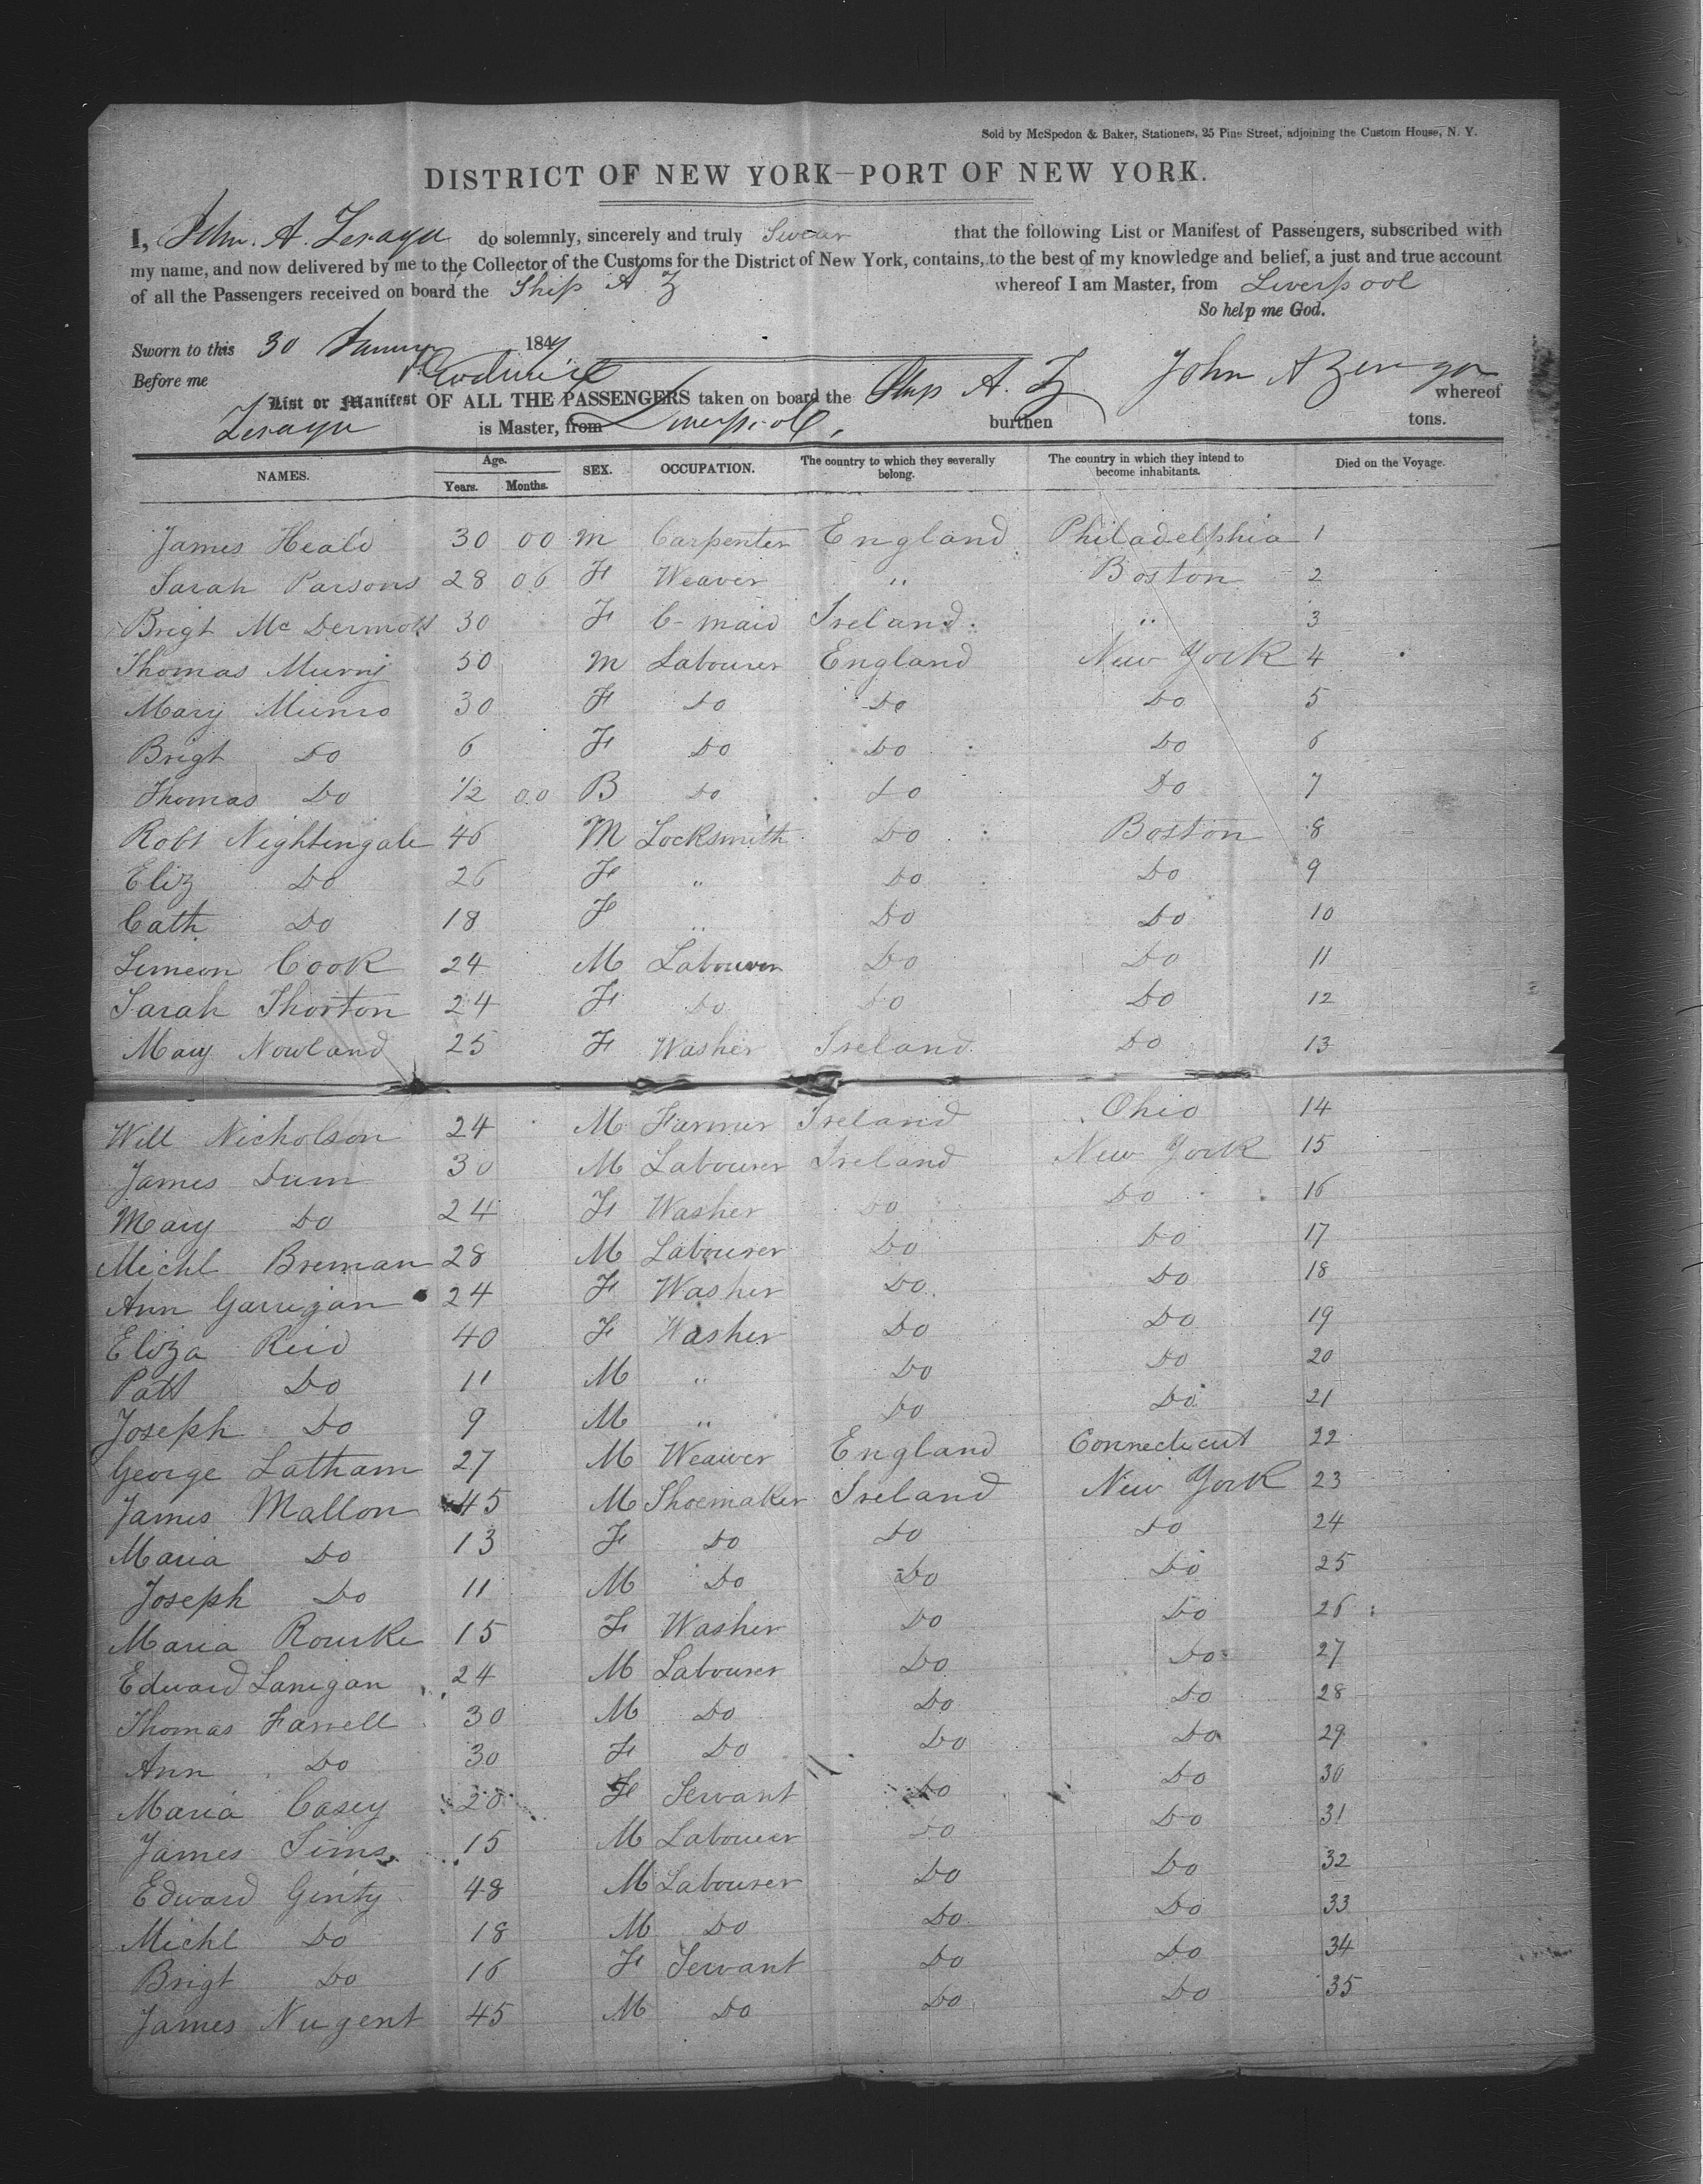 Sold by McSpedon & Baker, Stationers, 25 Pine Street, adjoining the Custom House, N. Y.
DISTRICT OF NEW YORK—PORT OF NEW YORK.
I, John. A. Zeraga do solemnly, sincerely and truly Swear that the following List or Manifest of Passengers, subscribed with
my name, and now delivered by me to the Collector of the Customs for the District of New York, contains, to the best of my knowledge and belief, a just and true account
of all the Passengers received on board the Ship A Z whereof I am Master, from Liverpool
So help me God.
Sworn to this 30 January 1847
Before me John A Zerega
List or Manifest OF ALL THE PASSENGERS taken on board the Ship A. Z whereof
is Master, from Liverpool, burthen tons.
NAMES. Age. Years. Months. SEX. OCCUPATION. The country to which they severally belong. The country in which they intend to become inhabitants. Died on the Voyage.
James Heald 30 00 m Carpenter England Philadelphia 1
Sarah Parsons 28 06 F Weaver " Boston 2
Brigt Mc Dermott 30 F C- maid Ireland. " 3
Thomas 50 m Labourer England New York 4
Mary Munro 30 F Do Do Do 5
Brigt Do 6 F Do Do Do 6
Thomas Do 1/2 00 B Do Do Do 7
Robt Nightingale 46 M Locksmith Do Boston 8
Eliz Do 26 F " Do Do 9
Cath Do 18 F " Do Do 10
Simeon Cook 24 M Labourer Do Do 11
Sarah Thorton 24 F Do Do Do 12
Mary Nowland 25 F Washer Ireland Do 13
Will Nicholson 24 M Farmer Ireland Ohio 14
James Dunn 30 M Labourer Ireland New York 15
Mary Do 24 F Washer Do Do 16
Michl Brennan 28 M Labourer Do Do 17
Ann Garrigan 24 F Washer Do Do 18
Eliza Reid 40 F Washer Do Do 19
Patt Do 11 M " Do Do 20
Joseph Do 9 M " Do Do 21
George Latham 27 M Weaver England Connecticut 22
James Mallon 45 M Shoemaker Ireland New York 23
Maria Do 13 F Do Do Do 24
Joseph Do 11 M Do Do Do 25
Maria Rourke 15 F Washer Do Do 26
Edward Lanigan 24 M Labourer Do Do 27
Thomas Farrell 30 M Do Do Do 28
Ann Do 30 F Do Do Do 29
Maria Casey 20 F Servant Do Do 30
James Sims 15 M Labourer Do Do 31
Edward Ginty 48 M Labourer Do Do 32
Michl Do 18 M Do Do Do 33
Brigt Do 16 F Servant Do Do 34
James Nugent 45 M Do Do Do 35